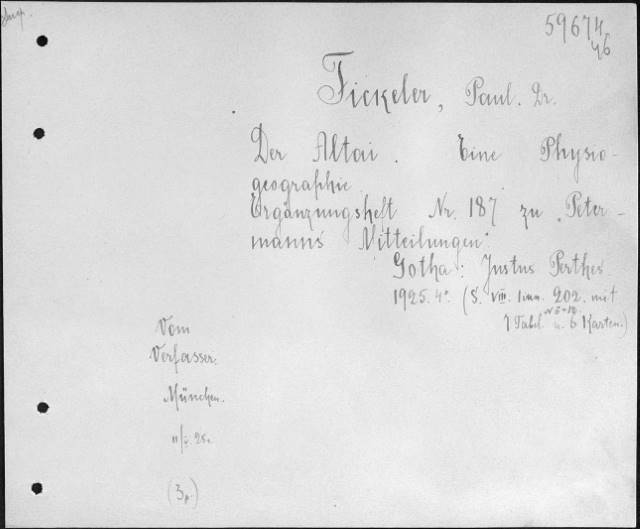 59674
46
Fickeler, Paul. Dr.
Der Altai. Eine Physio-
geographie
Ergänzungsheft Nr. 187 zu „Peter-
manns Mitteilungen".
Gotha: Justus Perthes
1925. 4°. (S. VIII. 202. mit
1 Tabel. u. 6 Karten.)
Vom
Verfasser.
München.
25.
(3p.)